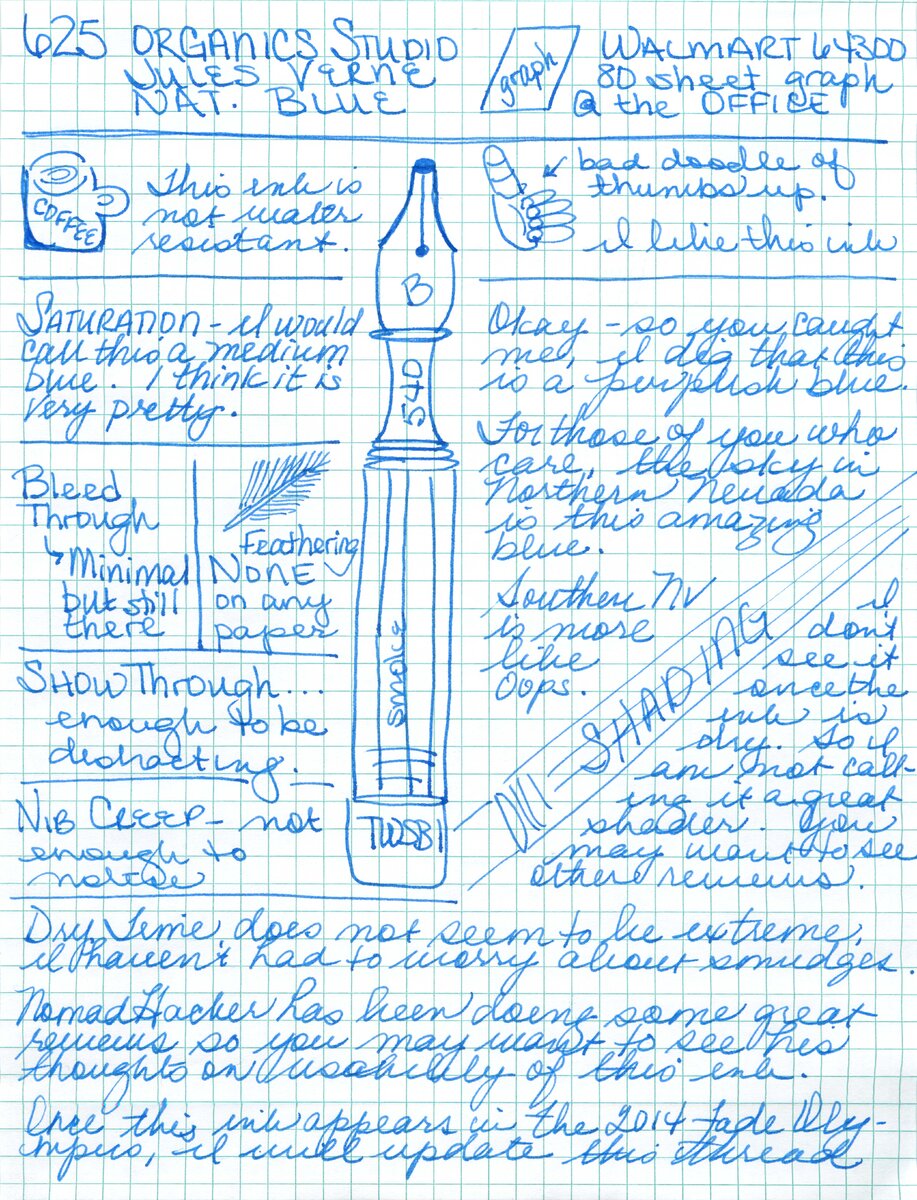 625 ORGANICS STUDIO
JULES VERNE
NAT. BLUE
graph
WALMART 64300
80 sheet graph
@ the OFFICE
COFFEE
This ink is
not water
resistant.
bad doodle of
thumbs up.
I like this ink
B
540
smoke
TWSBI
SATURATION - I would
call this a medium
blue. I think it is
very pretty.
Bleed
Through
Minimal
but still
there
Feathering
NONE
on any
paper
SHOW THROUGH...
enough to be
distracting.
NIB CREEP - not
enough to
notice
Okay - so you caught
me, I dig that this
is a purplish blue.
For those of you who
care, the sky in
Northern Nevada
is this amazing
blue.
Southern NV
is more
like
Oops.
SHADING
I
don't
see it
once the
ink is
dry. So I
am not call-
ing it a great
shader. You
may want to see
other reviews.
Dry Time does not seem to be extreme,
I haven't had to worry about smudges.
NomadHacker has been doing some great
reviews so you may want to see his
thoughts on usability of this ink.
Once this ink appears in the 2014 Fade Oly-
mpics, I will update this thread